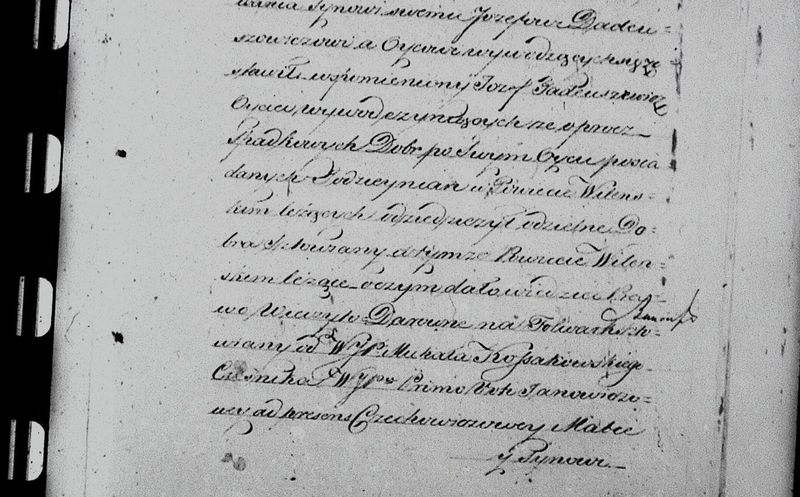 wania Synowi swemu Jozefowi Dadeu=
szowiczowi a Oycowi wywodzących się ze
stawił wspomieniony Jozef Tadeuszewicz
Oyciec wywod czyniących że oprocz
Spadkowych Dobr po Swym Oycu posia
danych Podzieynian w Powiecie Wilens=
kim leżących odziedziczył odzielne Do=
bra Sztowiany w tymże Powiecie Wilen=
skiem leżące o czym dało wiedzieć Pra=
wo Wieczysto Darowne na Folwark Szto=
wiany od WJP. Michała Kossakowskiego
Cześnika WJPni Primo Voto Janowiczo=
wey ad presens Czechowiczowey Matce
y Synowi